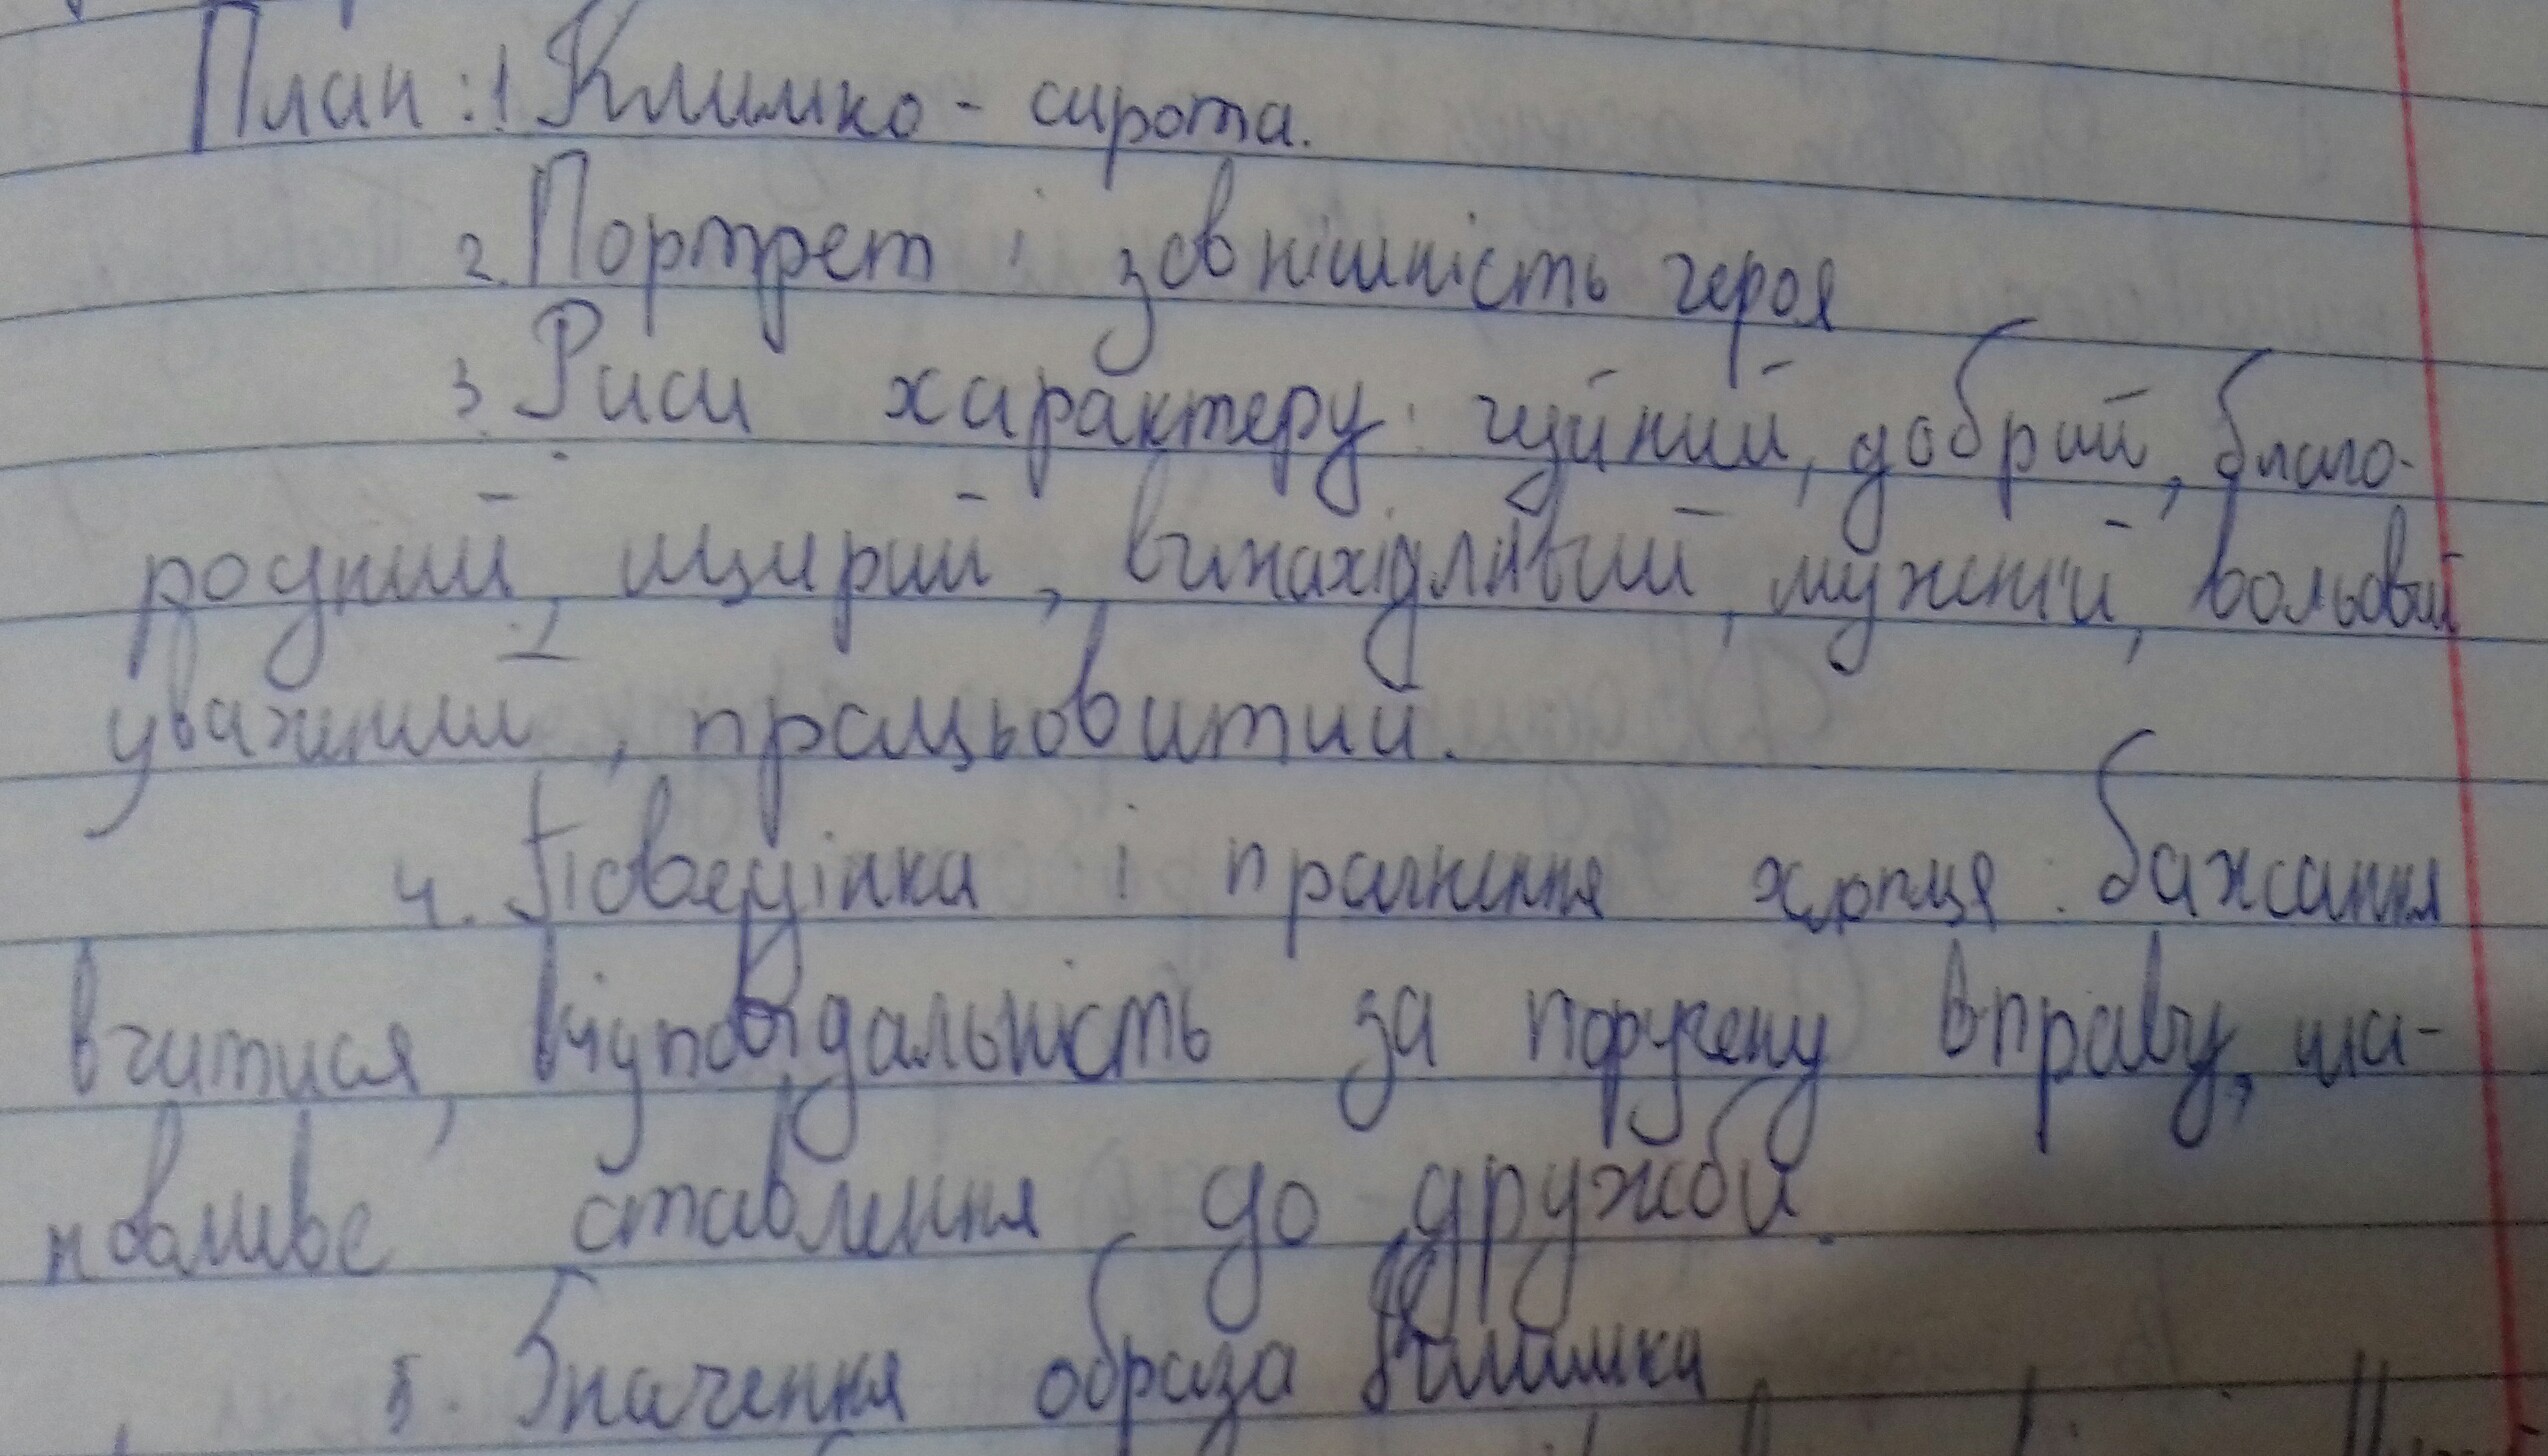 План: 1 Климко - сирота.
2. Портрет і зовнішність героя
3. Риси характеру: чуйний, добрий, благо-
родний, щирий, винахідливий, мужній, вольовий
уважний, працьовитий.
4. Поведінка і прагнення хлопця: бажання
вчитися, відповідальність за поручену вправу, ша-
нобливе ставлення до дружби.
5. Значення образа Климка